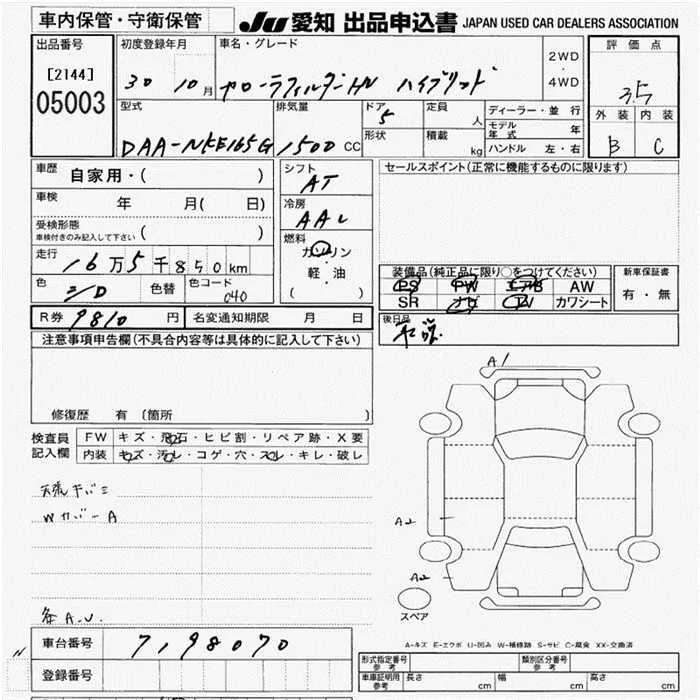 車内保管・守衛保管
JU 愛知 出品申込書 JAPAN USED CAR DEALERS ASSOCIATION
出品番号
[2144]
05003
初度登録年月
30 10月
車名・グレード
カローラフィルダーHV ハイブリッド
2WD
・
4WD
評価点
3.5
外装 内装
B C
型式
DAA-NKE165G
排気量
1500 CC
ドア
5
形状
定員
人
積載
kg
ディーラー・並行
モデル年式 年
ハンドル 左・右
車歴
自家用・( )
車検
年 月( 日)
受検形態
車検付きのみ記入して下さい ( )
走行
16万5千850km
色
シロ
色替
色コード
040
シフト
AT
冷房
AAC
燃料
ガソリン
・
軽・油
( )
セールスポイント(正常に機能するものに限ります)
装備品(純正品に限り○をつけてください)
PS PW エアB AW
SR ナビ TV カワシート
新車保証書
有・無
R券 9810 円
名変通知期限 月 日
後日品
注意事項申告欄(不具合内容等は具体的に記入して下さい)
修復歴 有 〔箇所 〕
検査員
記入欄
FW キズ・飛石・ヒビ割・リペア跡・X要
内装 キズ・汚レ・コゲ・穴・スレ・キレ・破レ
Wカバー A
A1
A2
A2
スペア
A-キズ E-エクボ U-凹み W-補修跡 S-サビ C-腐食 XX-交換済
車台番号
7198070
登録番号
形式指定番号
参考
類別区分番号
参考
車庫証明用
参考
長さ cm
幅 cm
高さ cm